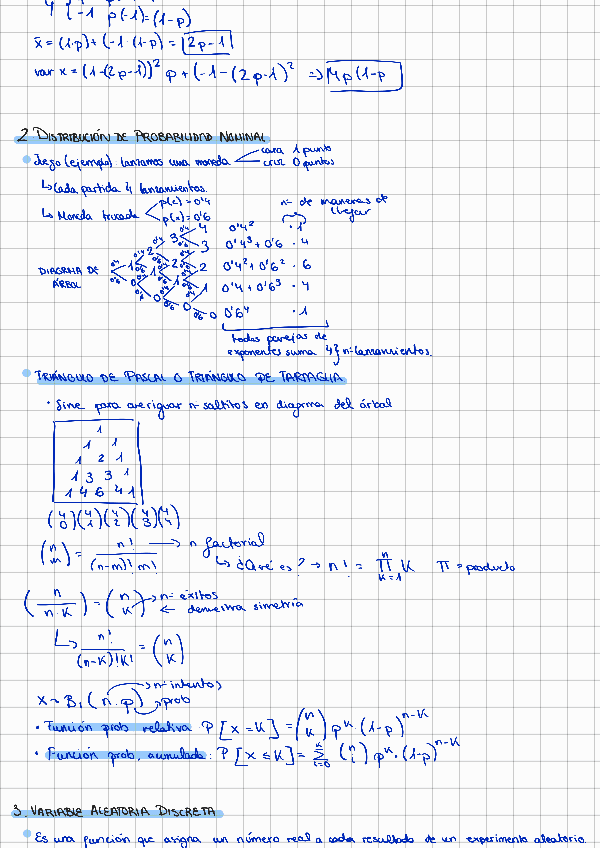 4 { -1 p(-1)=(1-p)
x̄ = (1·p)+(-1·(1-p) = 2p-1
var x = (1-(2p-1))² p + (-1-(2p-1)² => 4p(1-p
2 DISTRIBUCIÓN DE PROBABILIDAD NOMINAL
Juego (ejemplo): lanzamos una moneda
cara 1 punto
cruz 0 puntos
↳ Cada partida 4 lanzamientos.
↳ Moneda trucada
p(c) = 0'4
p(x) = 0'6
nº de maneras de llegar
DIAGRAMA DE ÁRBOL
4 0'4² · 1
3 0'4³ + 0'6 · 4
2 0'4² + 0'6² · 6
1 0'4 + 0'6³ · 4
0 0'6⁴ · 1
todas parejas de
exponentes suma 4 } nº lanzamientos.
TRIÁNGULO DE PASCAL O TRIÁNGULO DE TARTAGLIA
· Sirve para averiguar nº saltitos en diagrma del árbol
1
1 1
1 2 1
1 3 3 1
1 4 6 4 1
(4 0)(4 1)(4 2)(4 3)(4 4)
(n m) = n! / (n-m)! m! → n factorial
↳ ¿Qué es? → n! = ∏ K K=1 n ∏ = producto
(n n-K) = (n K) → nº éxitos
← demuestra simetría
↳ n! / (n-K)!K! = (n K)
X ~ Bi (n, p) → nº intentos
→ prob
· Función prob relativa P[x=K] = (n K) p^K · (1-p)^n-K
· Función prob, acumulada: P[x≤K] = Σ i=0 K (n i) p^K · (1-p)^n-K
3. VARIABLE ALEATORIA DISCRETA
Es una función que asigna un número real a cada resultado de un experimento aleatorio.